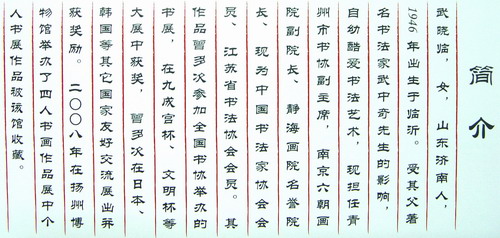 简介
武晓临，女，山东济南人，
1946年出生于临沂。受其父著
名书法家武中奇先生的影响，
自幼酷爱书法艺术，现担任青
州市书协副主席，南京六朝画
院副院长、静海画院名誉院
长、现为中国书法家协会会
员、江苏省书法协会会员。其
作品曾多次参加全国书协举办的
书展，在九成宫杯、文明杯等
大展中获奖，曾多次在日本、
韩国等其它国家友好交流展出并
获奖励。二〇〇八年在扬州博
物馆举办了四人书画作品展中个
人书展作品被该馆收藏。